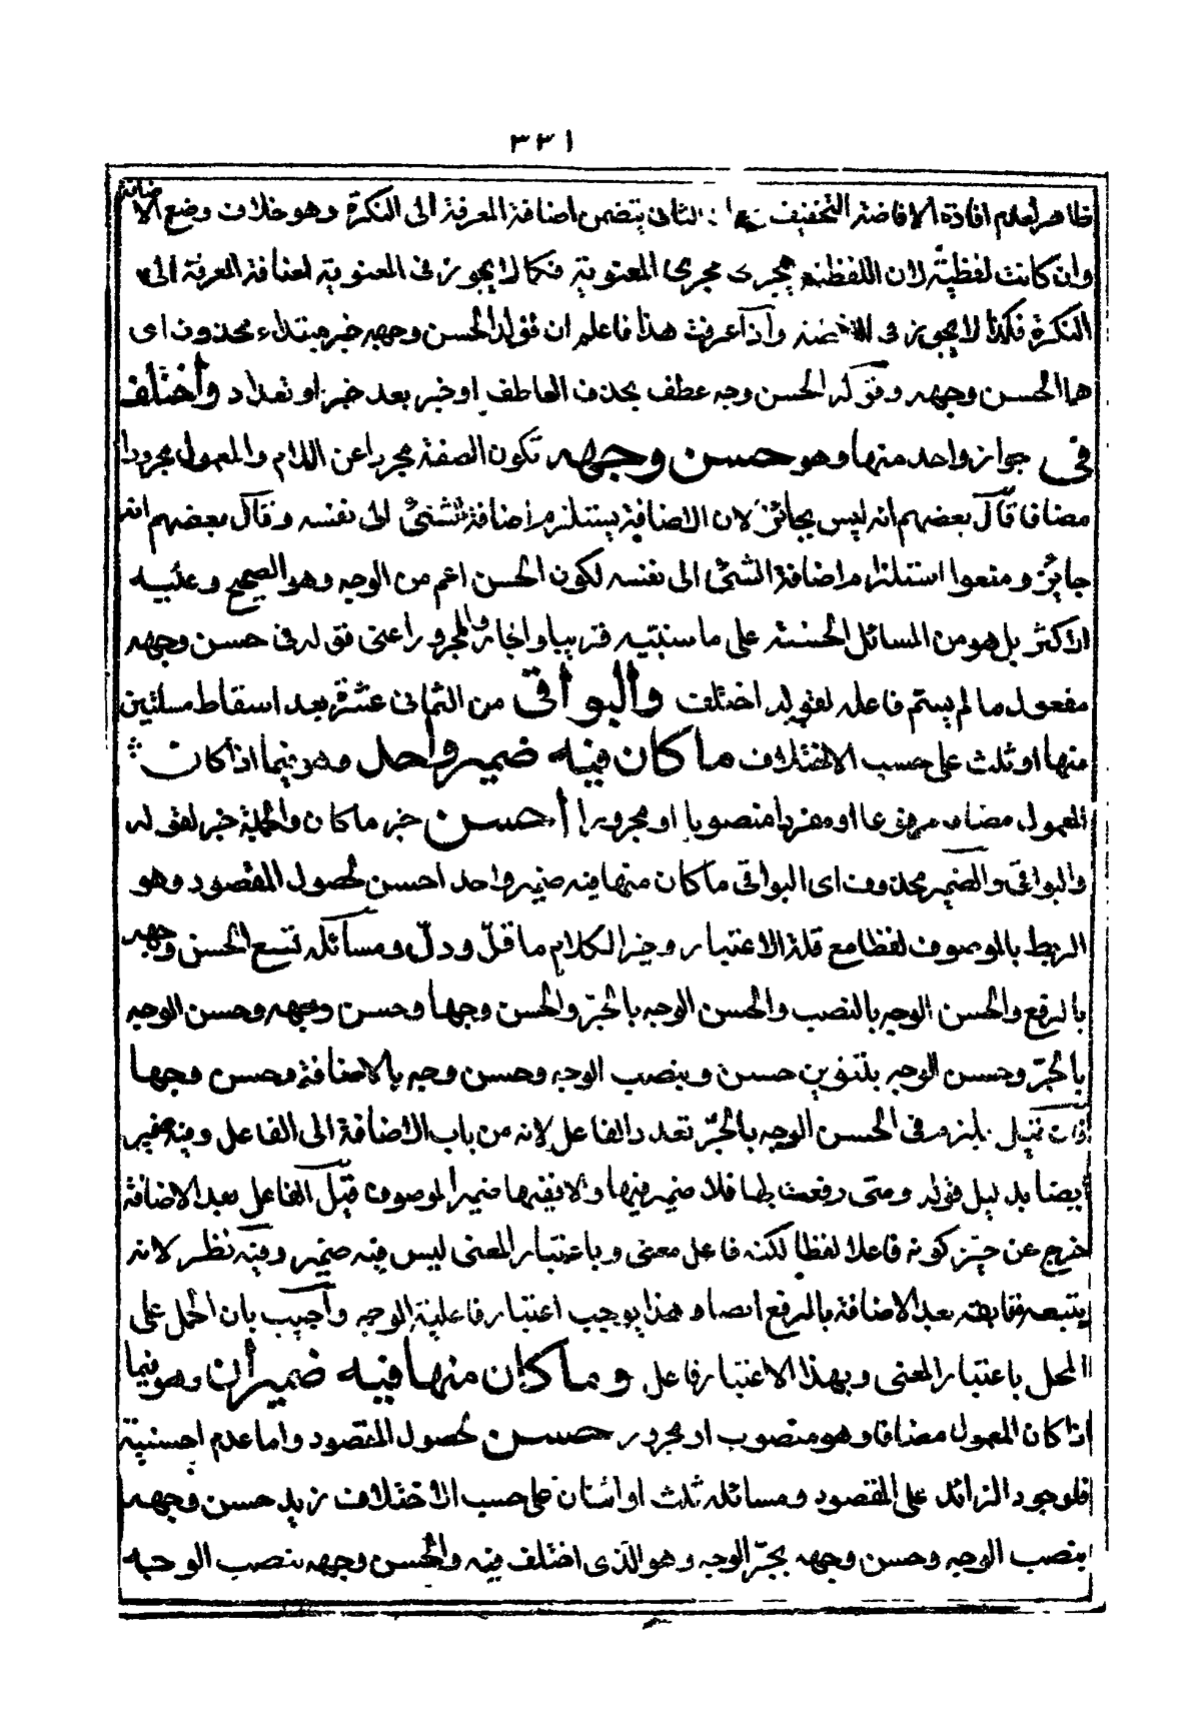 ٣٣١
ظاهر لعدم افادة الاضافة التخفيف الثانى يتضمن اضافة المعرفة الى النكرة وهو خلاف وضع الاضافة
وان كانت لفظية لان اللفظية يجرى مجرى المعنوية فكما لا يجوز فى المعنوية اضافة المعرفة الى
النكرة فكذا لا يجوز فى اللفظية واذا عرفت هذا فاعلم ان قوله الحسن وجهه خبر مبتداء محذوف اى
هما الحسن وجهه وقوله الحسن وجه عطف بحذف العاطف او خبر بعد خبر او تعداد واختلف
فى جواز واحد منها وهو حسن وجهه تكون الصفة مجردا عن اللام والمعمول مجرورا
مضافا قال بعضهم انه ليس بجائز لان الاضافة يستلزم اضافة الشئ الى نفسه وقال بعضهم انه
جائز ومنعوا استلزام اضافة الشئ الى نفسه لكون الحسن اعم من الوجه وهو الصحيح وعليه
الاكثر بل هو من المسائل الحسنة على ما سنبينه قريبا والجار والمجرور اعنى قوله فى حسن وجهه
مفعول ما لم يسم فاعله لقوله اختلف والبواقى من الثمانى عشرة بعد اسقاط مسئلتين
منها او ثلث على حسب الاختلاف ما كان فيه ضمير واحد وهو فيما اذا كان
المعمول مضافا مرفوعا او مفردا منصوبا او مجرورا احسن خبر ما كان والجملة خبر لقوله
والبواقى والضمير محذوف اى البواقى ما كان منها فيه ضمير واحد احسن لحصول المقصود وهو
الربط بالموصوف لفظا مع قلة الاعتبار وخير الكلام ما قلّ ودلّ ومسائله تسع الحسن وجهه
بالرفع والحسن الوجه بالنصب والحسن الوجه بالجرّ والحسن وجها وحسن وجهه وحسن الوجه
بالجرّ وحسن الوجه بتنوين حسن وبنصب الوجه وحسن وجه بالاضافة وحسن وجها
فان قيل يلزم فى الحسن الوجه بالجرّ تعدد الفاعل لانه من باب الاضافة الى الفاعل وفيه ضمير
ايضا بدليل قوله ومتى رفعت بها فلا ضمير فيها والا ففيها ضمير الموصوف قيل الفاعل بعد الاضافة
خرج عن حيّز كونه فاعلا لفظا لكنه فاعل معنى وباعتبار المعنى ليس فيه ضمير وفيه نظر لانه
يتبعه بعد الاضافة بالرفع ايضا وهذا يوجب اعتبار فاعلية الوجه واجيب بان الحمل على
المحل باعتبار المعنى وبهذا الاعتبار فاعل وما كان منها فيه ضميران وهو فيما
اذا كان المعمول مضافا وهو منصوب او مجرور حسن لحصول المقصود واما عدم احسنية
فلوجود الزائد على المقصود ومسائله ثلث او اثنان على حسب الاختلاف زيد حسن وجهه
بنصب الوجه وحسن وجهه بجرّ الوجه وهو الذى اختلف فيه والحسن وجهه بنصب الوجه